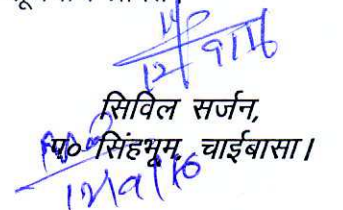 12/9/16
सिविल सर्जन,
प० सिंहभूम, चाईबासा।
12/9/16